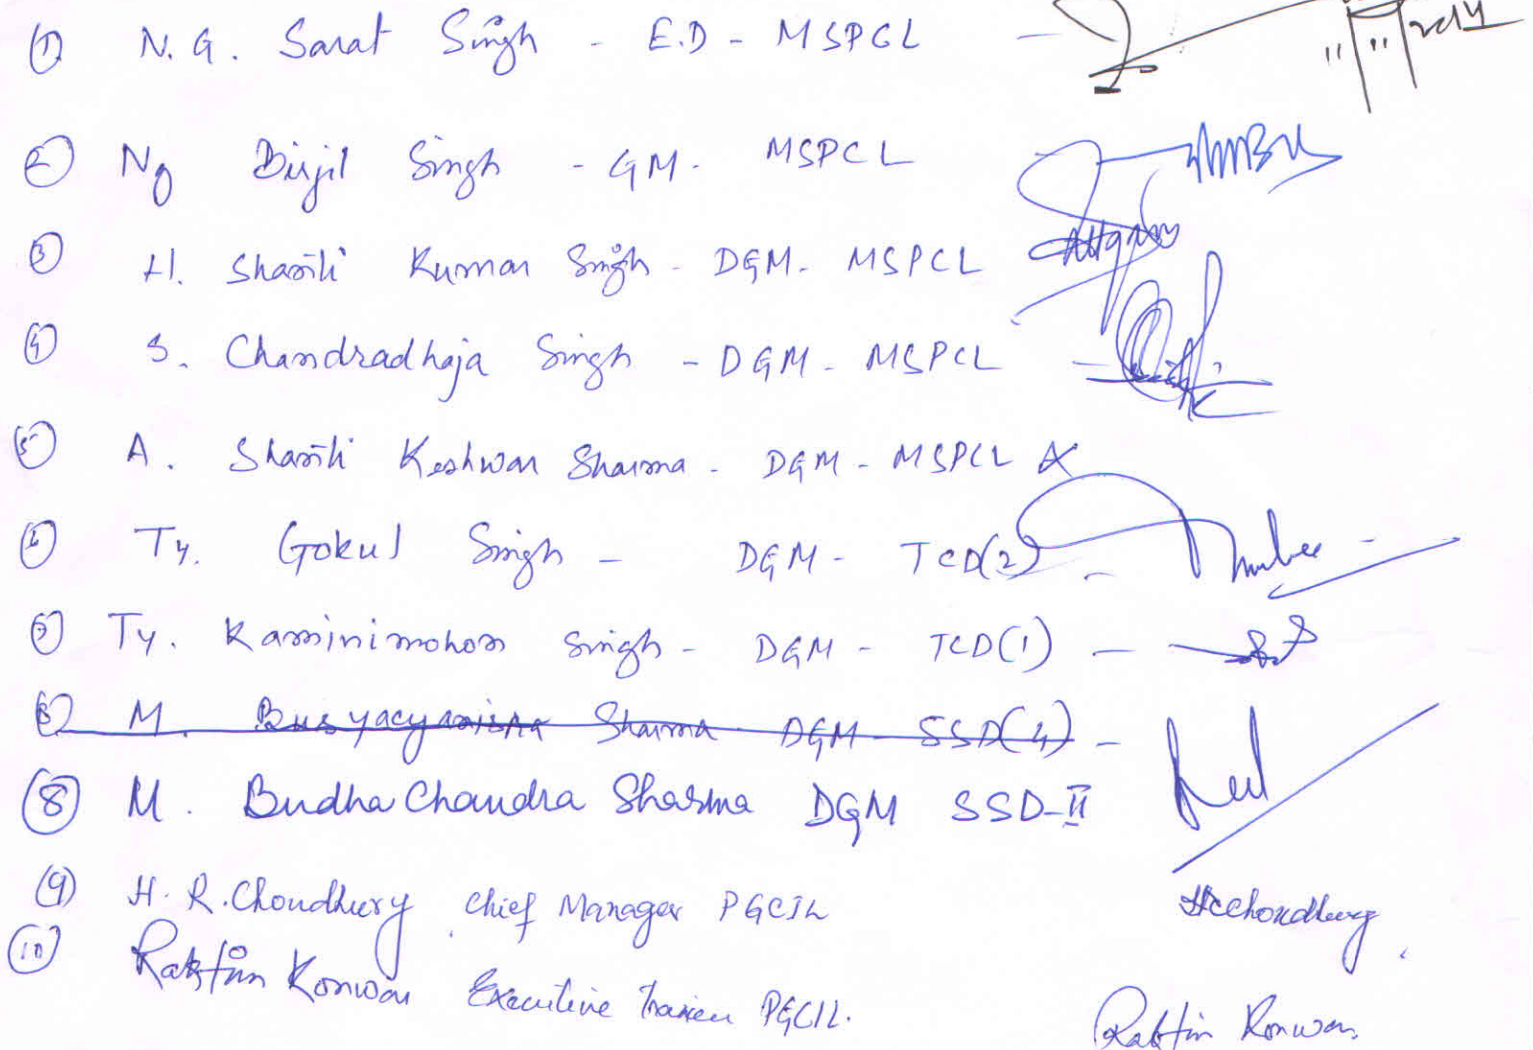 (1) N. G. Sarat Singh - E.D - MSPCL -
11/11/2014
(2) Ng Birjil Singh - GM - MSPCL
(3) H. Shanti Kumar Singh - DGM - MSPCL
(4) S. Chandradhaja Singh - DGM - MSPCL -
(5) A. Shanti Keshwar Sharma - DGM - MSPCL
(6) Ty. Gokul Singh - DGM - TCD(2) -
(7) Ty. Kaminimohon Singh - DGM - TCD(1) -
(8) M. Sharma DGM SSD(4) -
(8) M. Budha Chandra Sharma DGM SSD-II
(9) H. R. Choudhury Chief Manager PGCIL HRChoudhury
(10) Konwar Executive Trainee PGCIL. Konwar